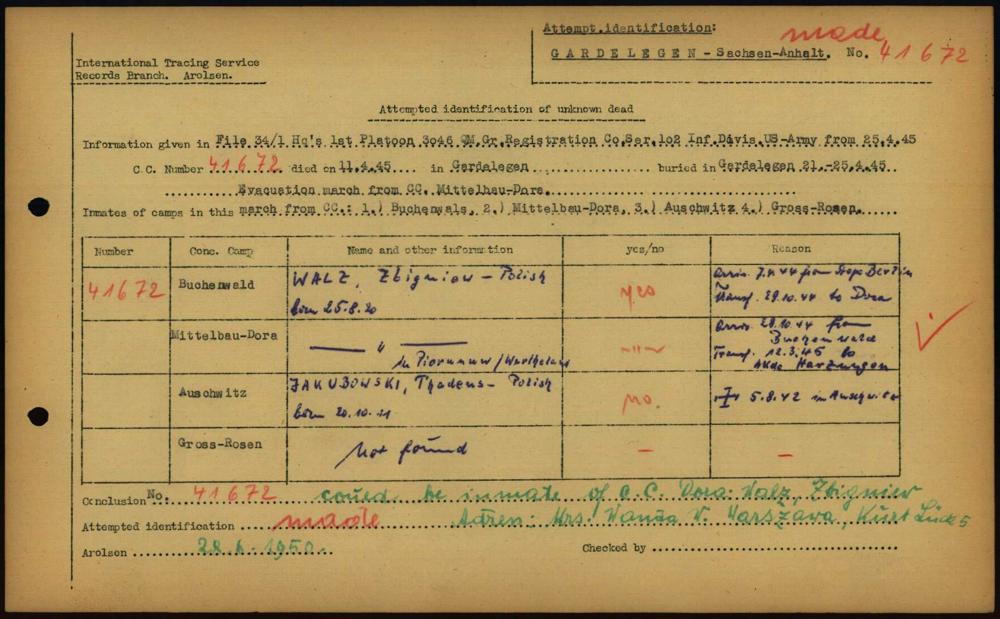 Attempt.identification: made
GARDELEGEN - Sachsen-Anhalt. No. 41672
International Tracing Service
Records Branch. Arolsen.
Attempted identification of unknown dead
Information given in File 34/1 Hq's 1st Platoon 3o46 QM.Gr.Registration Co.Ser.1o2 Inf.Divis.US-Army from 25.4.45
C.C. Number 41672 died on 11.4.45.... in Gardelegen................ buried in Gardelegen 21.-25.4.45.
.........Evacuation march from CC. Mittelbau-Dora.
Inmates of camps in this march from CC.: 1.) Buchenwals, 2.) Mittelbau-Dora, 3.) Auschwitz 4.) Gross-Rosen......
Number Conc. Camp Name and other information yes/no Reason
41672 Buchenwald WALZ, Zbigniew - Polish yes arriv. 7.4.44 from Bertin
born 25.8.20 Transf. 29.10.44 to Dora
Mittelbau-Dora — " — —"— arriv. 29.10.44 from
Buchenwald
in /Warthelaus Transf. 12.3.45 to
Akdo Harzungen
Auschwitz JAKUBOWSKI, Thadeus - Polish no. 5.8.42 in Auschwitz
born 20.10.11
Gross-Rosen Not found — —
Conclusion No. 41672 could be inmate of C.C. Dora: Walz, Zbigniew
Attempted identification made Adren: Mrs. Wanda W. Warszawa, Kurt Lück 5
Arolsen 1950 Checked by